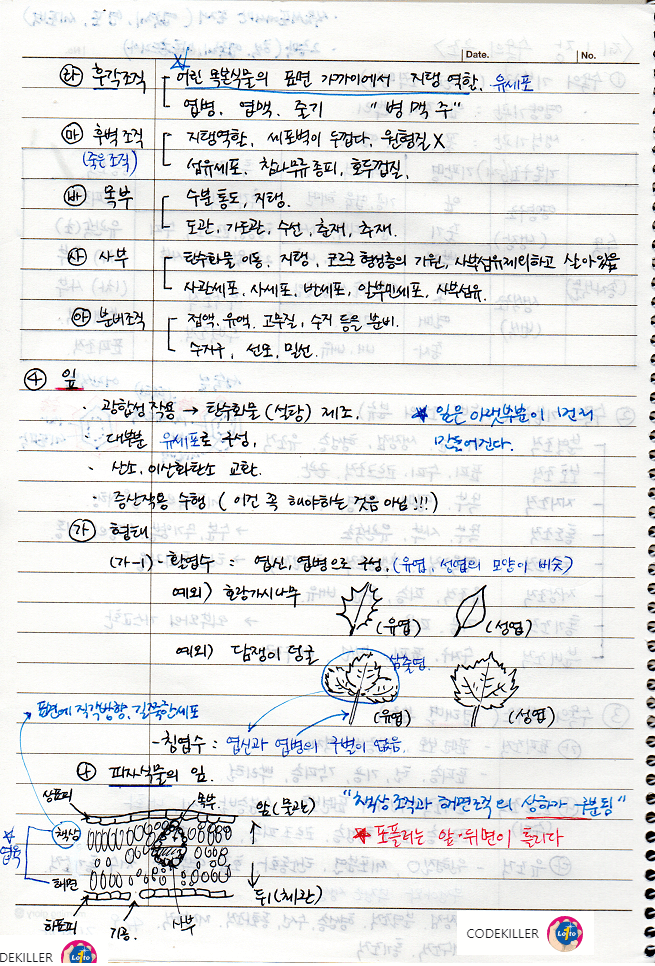 Date. No.
㉱ 후각조직 어린 목본식물의 표면 가까이에서 지탱 역할. 유세포
엽병. 엽맥. 줄기 "병맥주"
㉲ 후벽조직 지탱역할, 세포벽이 두껍다. 원형질 X
(죽은조직) 섬유세포. 참나무류 종피, 호두껍질.
㉳ 목부 수분통도, 지탱.
도관, 가도관, 수선, 춘재, 추재.
㉴ 사부 탄수화물 이동, 지탱, 코르크 형성층의 기원, 사부섬유제외하고 살아있음
사관세포. 사세포, 반세포, 알부민세포, 사부섬유.
㉵ 분비조직 점액. 유액. 고무질, 수지 등을 분비.
수지구, 선모, 밀선.
④ 잎
· 광합성작용 → 탄수화물 (설탕) 제조. ★ 잎은 아랫부분이 먼저
· 대부분 유세포로 구성, 만들어진다.
· 산소, 이산화탄소 교환.
· 증산작용 수행 ( 이건 꼭 해야하는 것은 아님!!! )
㉮ 형태
(가-1) - 활엽수 : 엽신, 엽병으로 구성, (유엽, 성엽의 모양이 비슷)
예외) 호랑가시나무 (유엽) (성엽)
예외) 담쟁이 덩굴 (유엽) (성엽)
표면에 직각방향, 길쭉한세포
- 침엽수 : 엽신과 엽병의 구별이 없음.
㉯ 피자식물의 잎.
상표피 목부 앞(물관) "책상조직과 해면조직의 상하가 구분됨"
책상 ★ 포플러는 앞·뒤면이 톡리다
★ 엽육
해면 뒤(체관)
하표피 기공 사부
CODEKILLER Lotto
DEKILLER Lotto